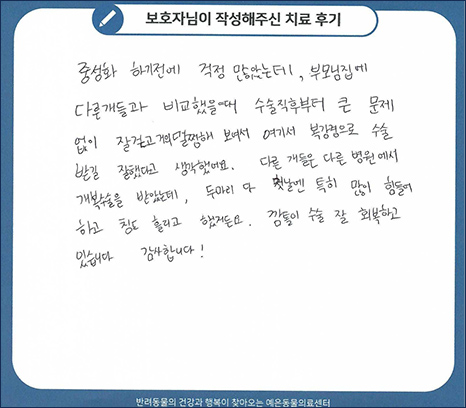 보호자님이 작성해주신 치료 후기
중성화 하기전에 걱정 많았는데, 부모님집에
다른개들과 비교했을때 수술직후부터 큰 문제
없이 잘걷고 거의 말짱해 보여서 여기서 복강경으로 수술
받길 잘했다고 생각했어요. 다른 개들은 다른 병원에서
개복수술을 받았는데, 두마리 다 첫날엔 특히 많이 힘들어
하고 침도 흘리고 했거든요. 깜돌이 수술 잘 회복하고
있습니다 감사합니다!
반려동물의 건강과 행복이 찾아오는 예은동물의료센터